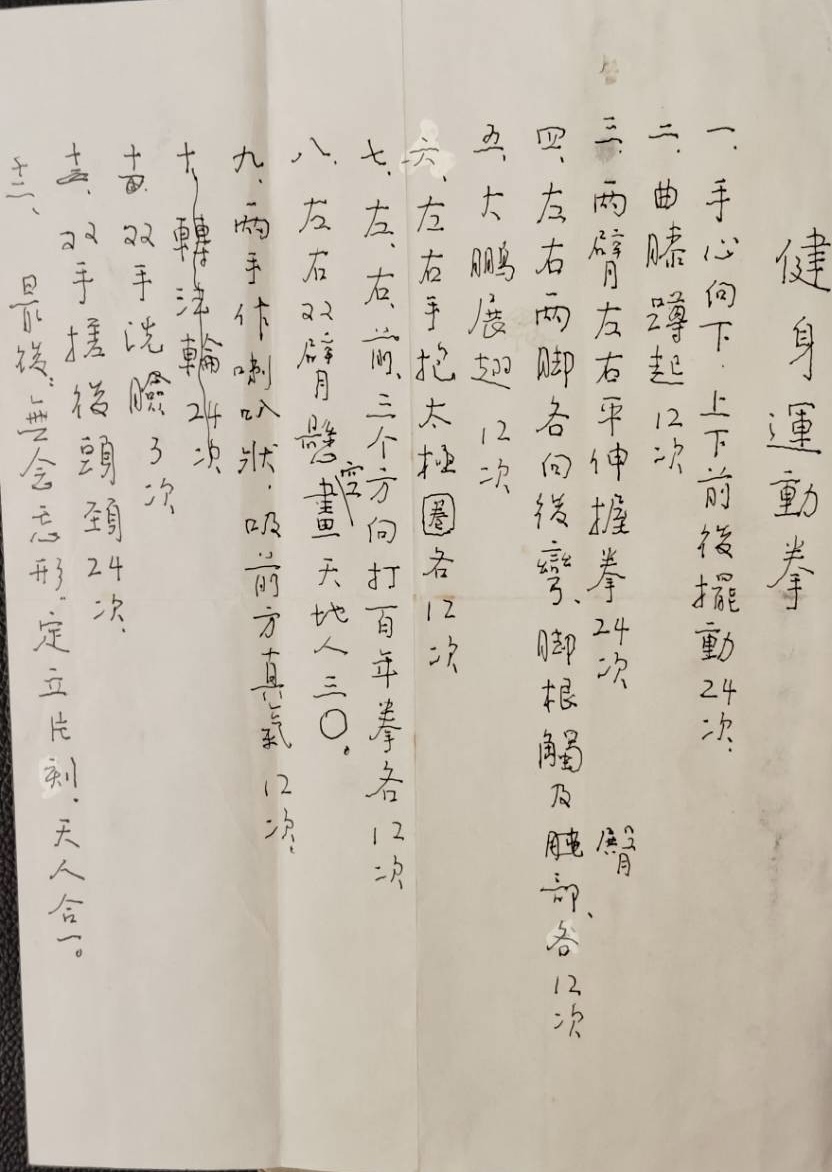 健身運動拳
一、手心向下.上下前後擺動24次.
二、曲膝蹲起12次
三、两臂左右平伸握拳24次
四、左右两脚各向後彎、脚根觸及臀部、各12次
五、大鵬展翅12次
六、左右手抱太極圈各12次
七、左、右、前、三个方向打百年拳各12次
八、左右双臂懸空畫天地人三〇。
九、兩手作喇叭狀.吸前方真氣12次.
十、轉法輪24次
双手洗臉3次
双手搓後頭頚24次.
最後:無念忘形.定立片刻.天人合一。